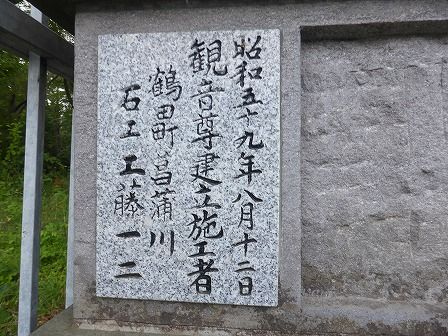 昭和五十九年八月十二日
観音尊建立施工者
鶴田町菖蒲川
石工工藤一二